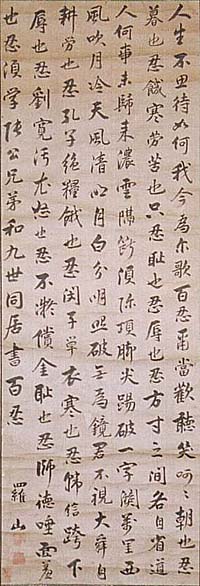 人生不忍待如何我今為尓歌百忍爾當歡聽笑呵々朝也忍
暮也忍餓寒勞苦也只忍耻也忍辱也忍方寸之間各自省道
人何事未歸来濃雲隔斷須除頂脚尖踢破一字關万里西
風吹月冷天風清皎月白分明照破三為鏡君不視大舜自
耕勞也忍孔子絶糧餓也忍閔子單衣寒也忍韓信跨下
辱也忍劉寛污衣怒也忍不疑償金耻也忍師徳唾面
也忍須学張公兄弟和九世同居書百忍
羅山